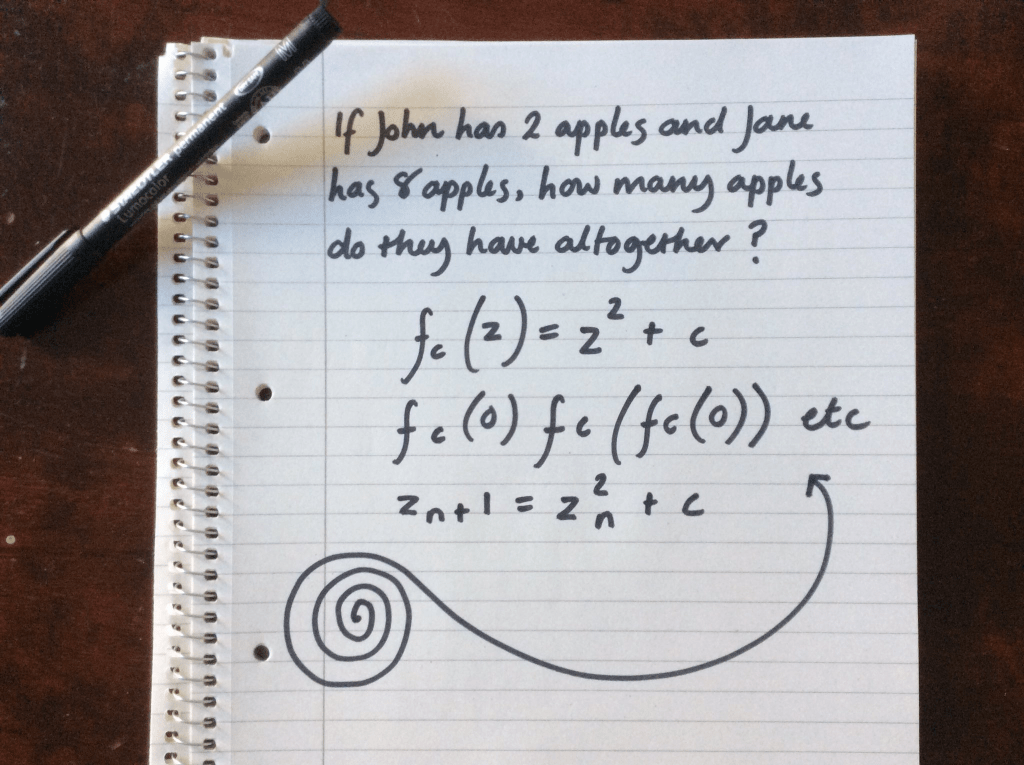 If John has 2 apples and Jane
has 8 apples, how many apples
do they have altogether ?
fc (z) = z² + c
fc (0) fc (fc (0)) etc
zn+1 = zn² + c
permanent
Lumocolor
M